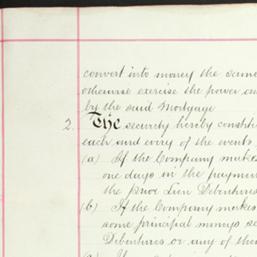 convert into money the same
otherwise exercise the power
by the said Mortgage
2. The security hereby
each and every of the events
(a) If the Company makes
one days in the payment
the prior Lien Debentures
(b) If the Company makes
some principal moneys
Debentures or any of